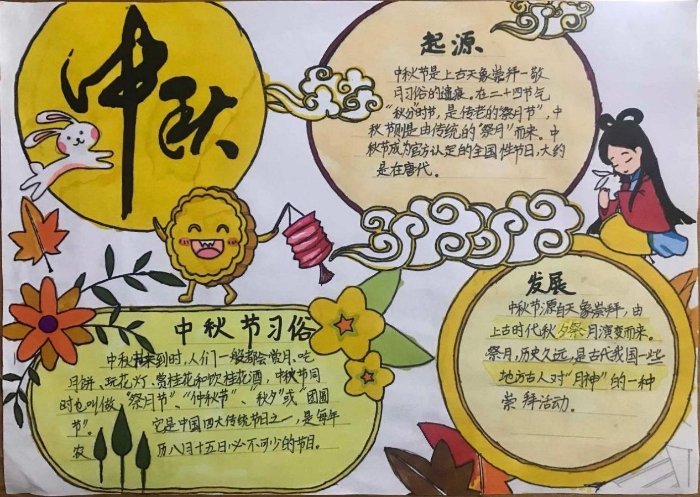 中秋
起源
中秋节是上古天象崇拜一敬
月习俗的遗痕。在二十四节气
"秋分"时节,是传老的"祭月节",中
秋节则是由传统的"祭月"而来。中
秋节成为官方认定的全国性节日,大约
是在唐代。
中秋节习俗
中秋来到时,人们一般都会赏月、吃
月饼、玩花灯、赏桂花和饮桂花酒,中秋节同
时也叫做"祭月节"、"仲秋节"、"秋夕"或"团圆
节"。它是中国四大传统节日之一,是每年
农历八月十五日必不可少的节目。
发展
中秋节源自天象崇拜,由
上古时代秋夕祭月演变而来。
祭月,历史久远,是古代我国一些
地方古人对"月神"的一种
崇拜活动。